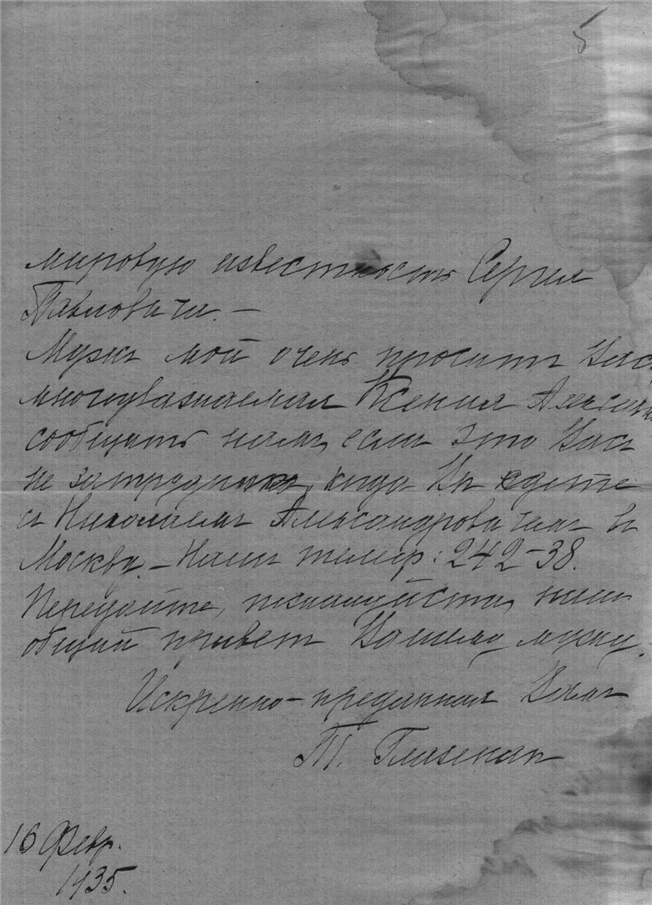 5
мировую известность Сергея
Павловича. —
Мужъ мой очень просит Васъ
многоуважаемая Ксения Алексан
сообщить намъ, если это Васъ
не затруднитъ, когда Вы едете
съ Николаемъ Александровичемъ въ
Москву. — Нашъ телеф: 242–38.
Передайте, пожалуйста, нашъ
общий привет Вашему мужу.
Искренно-преданная Вамъ
Т. Глазенап
16 Февр.
1935.